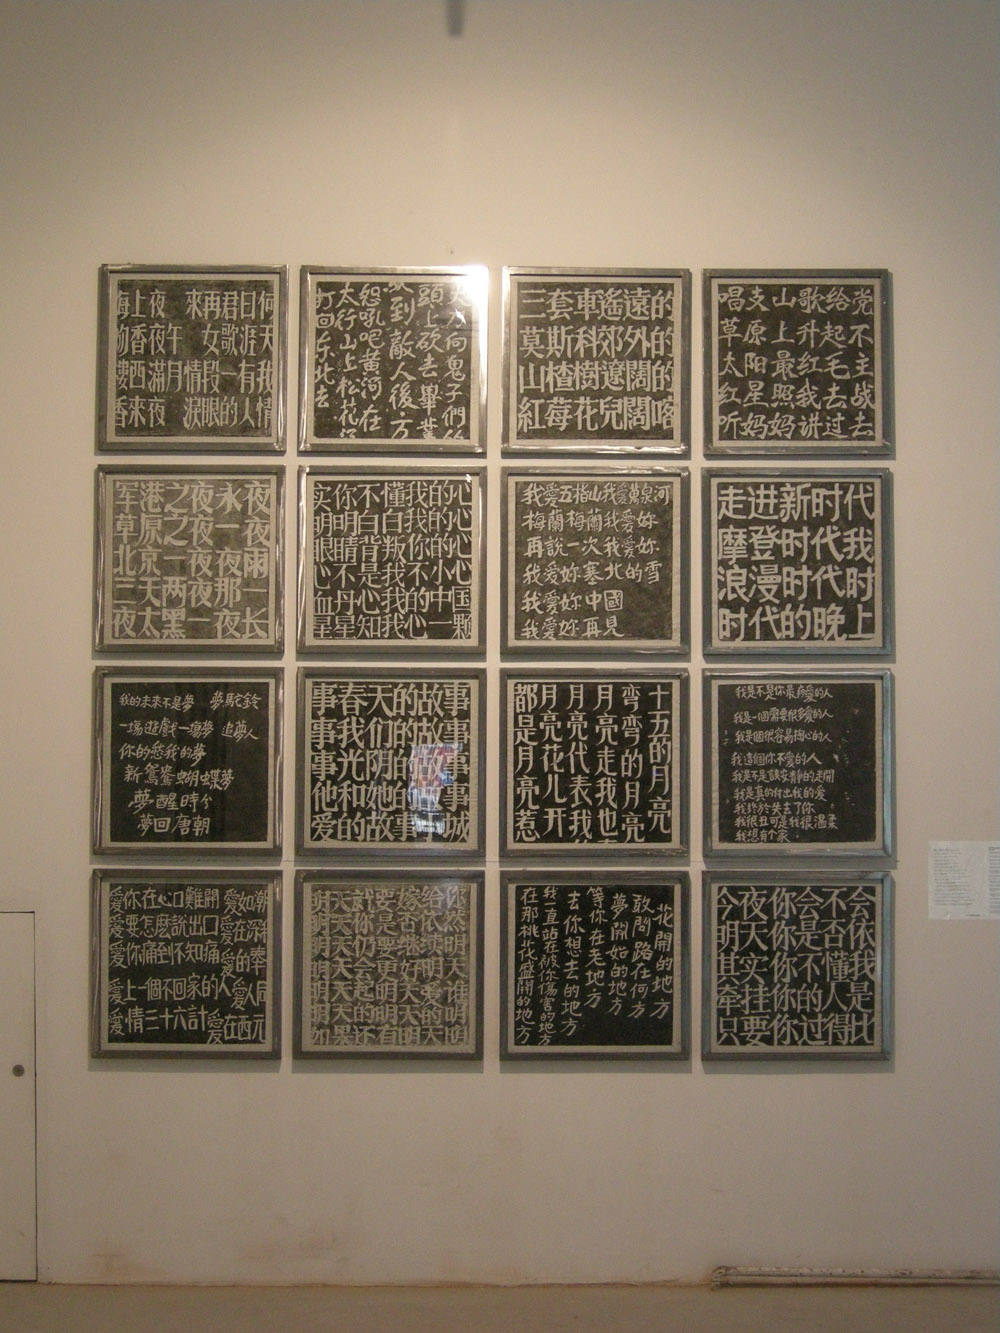 海上夜 來再君日何
物香夜午 女歌涯天
樓西滿月情段一有我
香來夜 淚眼的人情
大刀向鬼子們的
頭上砍去畢業
到敵人後方
怨吼吧黃河在
太行山上松花江
打回东北去
三套車遙遠的
莫斯科郊外的
山楂樹遼闊的
紅莓花兒開喀
唱支山歌给党
草原上升起不
太阳最红毛主
红星照我去战
听妈妈讲过去
军港之夜永夜
草原之夜一夜
北京一夜夜雨
三天两夜那一
夜太黑一夜长
实你不懂我的心
明明白白我的心
眼睛背叛你的心
心不是我不小心
血丹心我的中国
星星知我心一颗
我愛五指山我愛萬泉河
梅蘭梅蘭我愛妳
再說一次我愛妳
我愛妳塞北的雪
我愛妳中國
我愛妳再見
走进新时代
摩登时代我
浪漫时代时
时代的晚上
我的未来不是夢 夢駝鈴
一場遊戲一場夢 追夢人
你的愁我的夢
新鴛鴦蝴蝶夢
夢醒時分
夢回唐朝
事春天的故事
事我们的故事
事光阴的故事
他和她的故事
爱的故事城
十五的月亮
弯弯的月亮
月亮走我也
月亮代表我
月亮花儿开
都是月亮惹
我是不是你最疼愛的人
我是一個需要很多愛的人
我是個很容易擔心的人
我這個你不愛的人
我是不是該安靜的走開
我是真的付出我的爱
我终於失去了你
我很丑可是我很溫柔
我想有个家
愛你在心口難開 愛如潮
愛要怎麼說出口愛在深
愛你痛到不知痛愛的奉
愛上一個不回家的人愛人同
愛情三十六計愛在西元
你然明天谁明
给依读明爱的天
嫁否继好天大明
要是要更明明有
就你仍会起的还
天天天天天天果
明明明明明明如
花開的地方
敢問路在何方
夢開始的地方
等你在老地方
去你想去的地方
我一直站在被你傷害的地方
在那桃花盛開的地方
今夜你会不会
明天你是否依
其实你不懂我
牵挂你的人是
只要你过得比